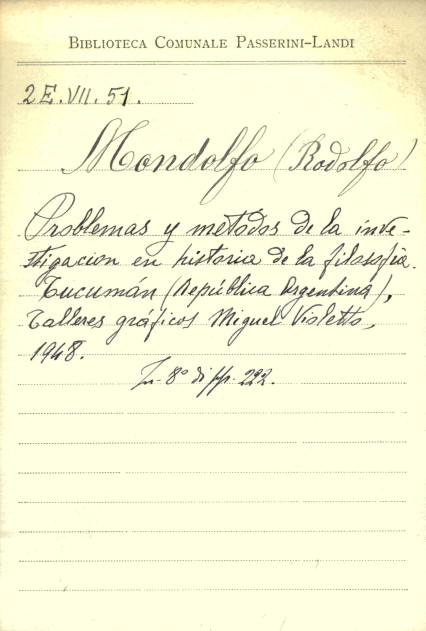 BIBLIOTECA COMUNALE PASSERINI-LANDI
2E.VII.51.
Mondolfo (Rodolfo)
Problemas y metódos de la inve-
stigacion en historia de la filosofia.
Tucumán (República Argentina),
Talleres gráficos Miguel Violetto,
1948.
In-8º di pp. 222.